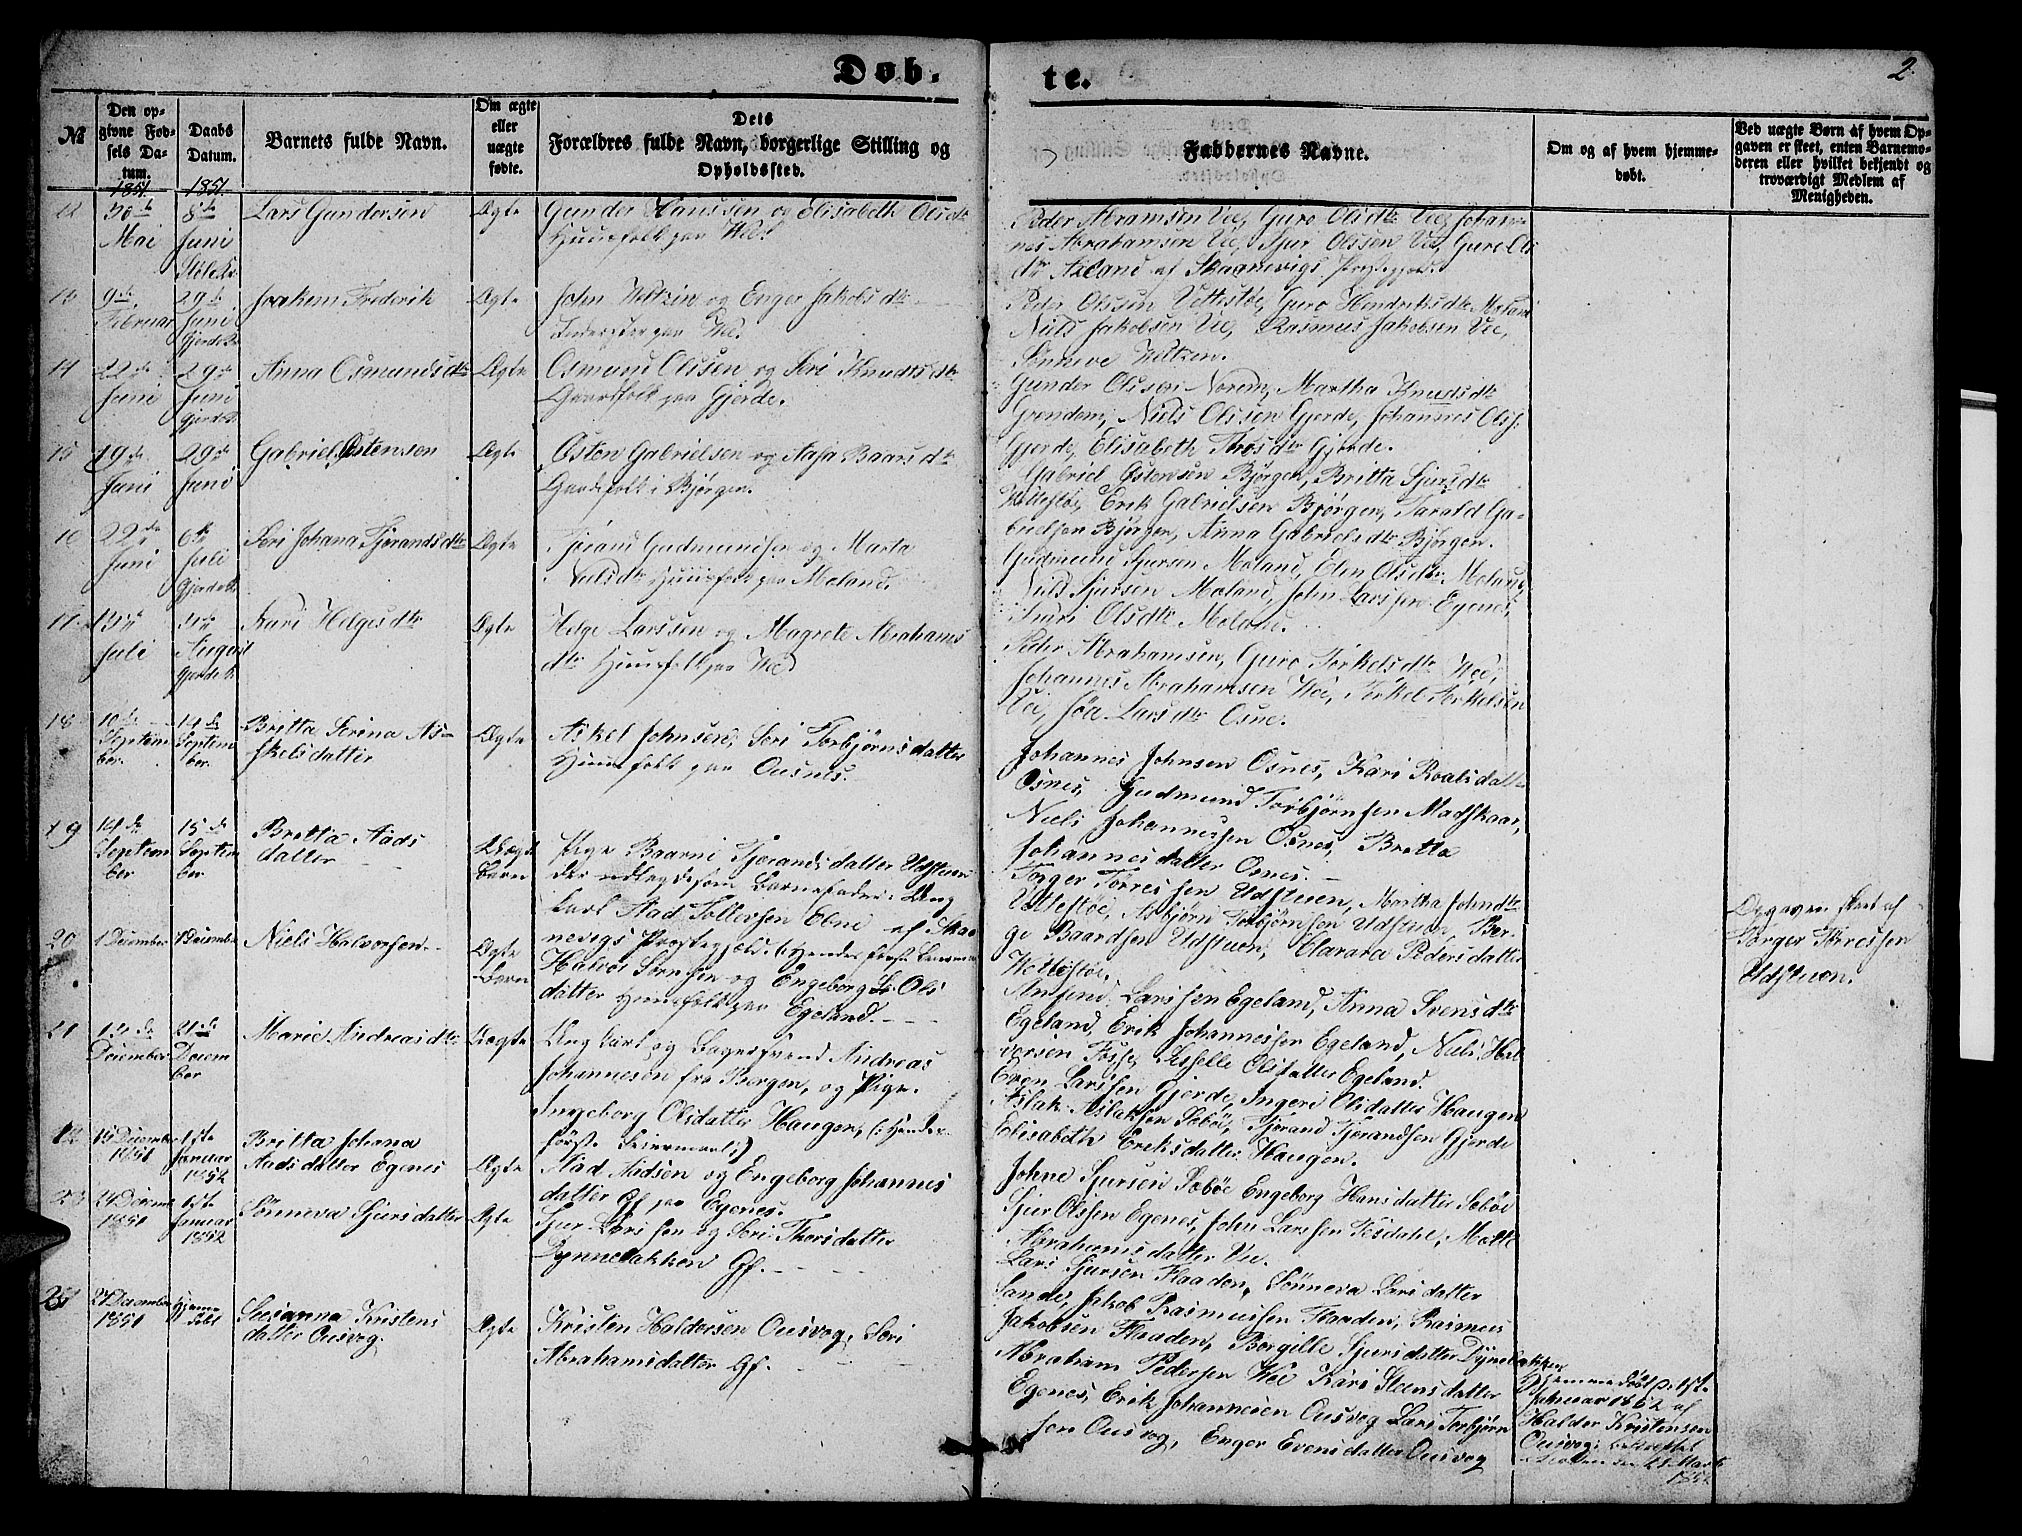 Døb-
te.
2.
№
Den op-
givne Fød-
sels Da-
tum.
1851.
Daabs
Datum.
1851.
Barnets fulde Navn.
Om ægte
eller
uægte
fødte.
Dets
Forældres fulde Navn, borgerlige Stilling og
Opholdssted.
Faddernes Navne.
Om og af hvem hjemme-
døbt.
Ved uægte Børn af hvem Op-
gaven er skeet, enten Barnemo-
deren eller hvilket bekjendt og
troværdigt Medlem af
Menigheden.
30te
Mai
8de
Juni
Lars Gundersen
Ægte
Gunder Hanssen og Elisabeth Olsdtr
Huusfolk paa Wee.
Peder Abramsen Vee, Guro Olsdtr Vee, Johan-
nes Abrahamsen Vee, Sjur Olssen Vee, Guro Ols
dtr Axland af Skaanevigs Præstegjeld.
9de
Februar
29de
Juni
Gjerde K.
Joakum Frederik
Ægte
John Weltzin og Enger Jakobsdtr
paa Wee.
Peder Olssen Vettestøe, Guro Hendriksdtr Moland
Niels Jakobsen Vee, Rasmus Jakobsen Vee,
Sønneve Weltzin.
14
22de
Juni
29de
Juni
Gjerde K.
Anna Osmundsdtr
Ægte
Osmund Olssen og Seri Knudtsdtr
Gaardfolk paa Gjerde.
Gunder Olssen Noreim, Martha Knudsdtr
Grendem, Niels Olssen Gjerde, Johannes Olss.
Gjerde, Elisabeth Thosdtr Gjerde.
15
19de
Juni
29de
Juni
Gabriel Østensen
Ægte
Østen Gabrielsen og Aasa Baarsdtr
Huusfolk i Bjørgen.
Gabriel Østensen Bjørgen, Britta Sjursdtr
Vettestøe, Erik Gabrielsen Bjørgen, Tarald Ga-
brielsen Bjørgen, Anna Gabrielsdtr Bjørgen.
16
22de
Juni
6te
Juli
Gjerde K.
Seri Johana Tjerandsdtr
Ægte
Tjerand Gudmundsen og Marta
Nielsdtr Huusfolk paa Moland.
Gudmund Sjursen Moland, Elen Olsdtr Moland,
Niels Sjursen Moland, John Larssen Egenes,
Olsdtr Moland.
17
13de
Juli
3de
August
Gjerde K.
Kari Helgesdtr
Ægte
Helge Larssen og Magrete Abrahams
dtr Huusfolk paa Wee
Peder Abrahamsen, Guro Torkelsdtr Wee,
Johannes Abrahamsen Wee, Torkel Torkelsen
Vee, Larsdtr Osne.
18
10de
Septem
ber.
14de
Septem
ber.
Britta Serina As-
kelsdatter
Ægte
Askel Johnsen, Seri Torbjørnsdatter
Huusfolk paa Ousnes.
Johannes Johnsen Osnes, Kari Roalsdatter
Osnes, Gudmund Torbjørnsen Madskaar,
Niels Johannessen Osnes, Bretta
Johannesdatter Osnes.
19
14de
Septem
ber
15de
Septem
ber
Bretta Aads
datter
Uægte
Barn
Pige Baarni Tjerandsdatter Udstuen
der udlagde som Barnefader: Ung
karl Aad Tollevsen Ebne af Skaa
nevigs Præstegjeld. (: Hendes første Leiermaal
Torger Torressen Udstuen, Martha Johndtr
Vettestøe, Asbjørn Torbjørnsen Udstuen, Bør-
ge Baardsen Udstuen, Clarara Pedersdatter
Wettestøe.
Opgaven skeet af
Torger Torressen
Udstuen.
20
1 December
December
Niels Halvorsen
Ægte
Barn
Halvor Sørensen og Engeborg Ols
datter Huusfolk paa Egeland.
Amund Larssen Egeland, Anna Svensdtr
Egeland, Erik Johannessen Egeland, Niels Hal
vorsen Fosse, Olsdatter Egeland.
21
12de
December
21de
Decem
ber
Marie Andreasdtr
Uægte
Ung karl og Bagersvend Andreas
Johannesen fra Bergen, og Pige
Ingeborg Olsdatter Haugen, (: Hendes
første Leiermaal :)
Even Larssen Gjerde, Ingeri Olsdatter Haugen
Aslak Aslaksen Søbøe, Tjerand Tjerandsen Gjerde
Elisabeth Eriksdatter Haugen.
22
December
1851
1ste
Januar
1852
Britta Johana
Aadsdatter Egenes
Ægte
Aad Aadsen og Engeborg Johannes
datter Gf paa Egenes.
Johne Sjursen Søbøe Engeborg Hansdatter Søbøe
Sjur Olssen Egenes, John Larssen Tesdahl, Mette
Abrahamsdatter Vee.
23
24 Decemb
1851
1ste
Januar
1852
Sønneva Sjursdatter
Ægte
Sjur Larssen og Seri Thorsdatter
Dynnebakken Gf.
Lars Sjursen Flaaden, Sønneva Larsdatter
Sande, Jakob Rasmussen Flaaden, Rasmus
Jakobsen Flaaden, Borgille Sjursdatter Dynebakken
24
27 December
1851
Hjemme
døbt
Susanna Kristens
datter Ousvog.
Ægte
Kristen Haldorsen Ousvog, Seri
Abrahamsdatter Gf.
Abraham Pedersen Wee Kari Steensdatter
Egenes, Erik Johannesen Ousvog Lars Torbjørn
sen Ousvog, Enger Evensdatter Ousvog
Hjemmedøbt
Januar 1852 af
Haldor Kristensen
Ousvog
21 Marts
1852